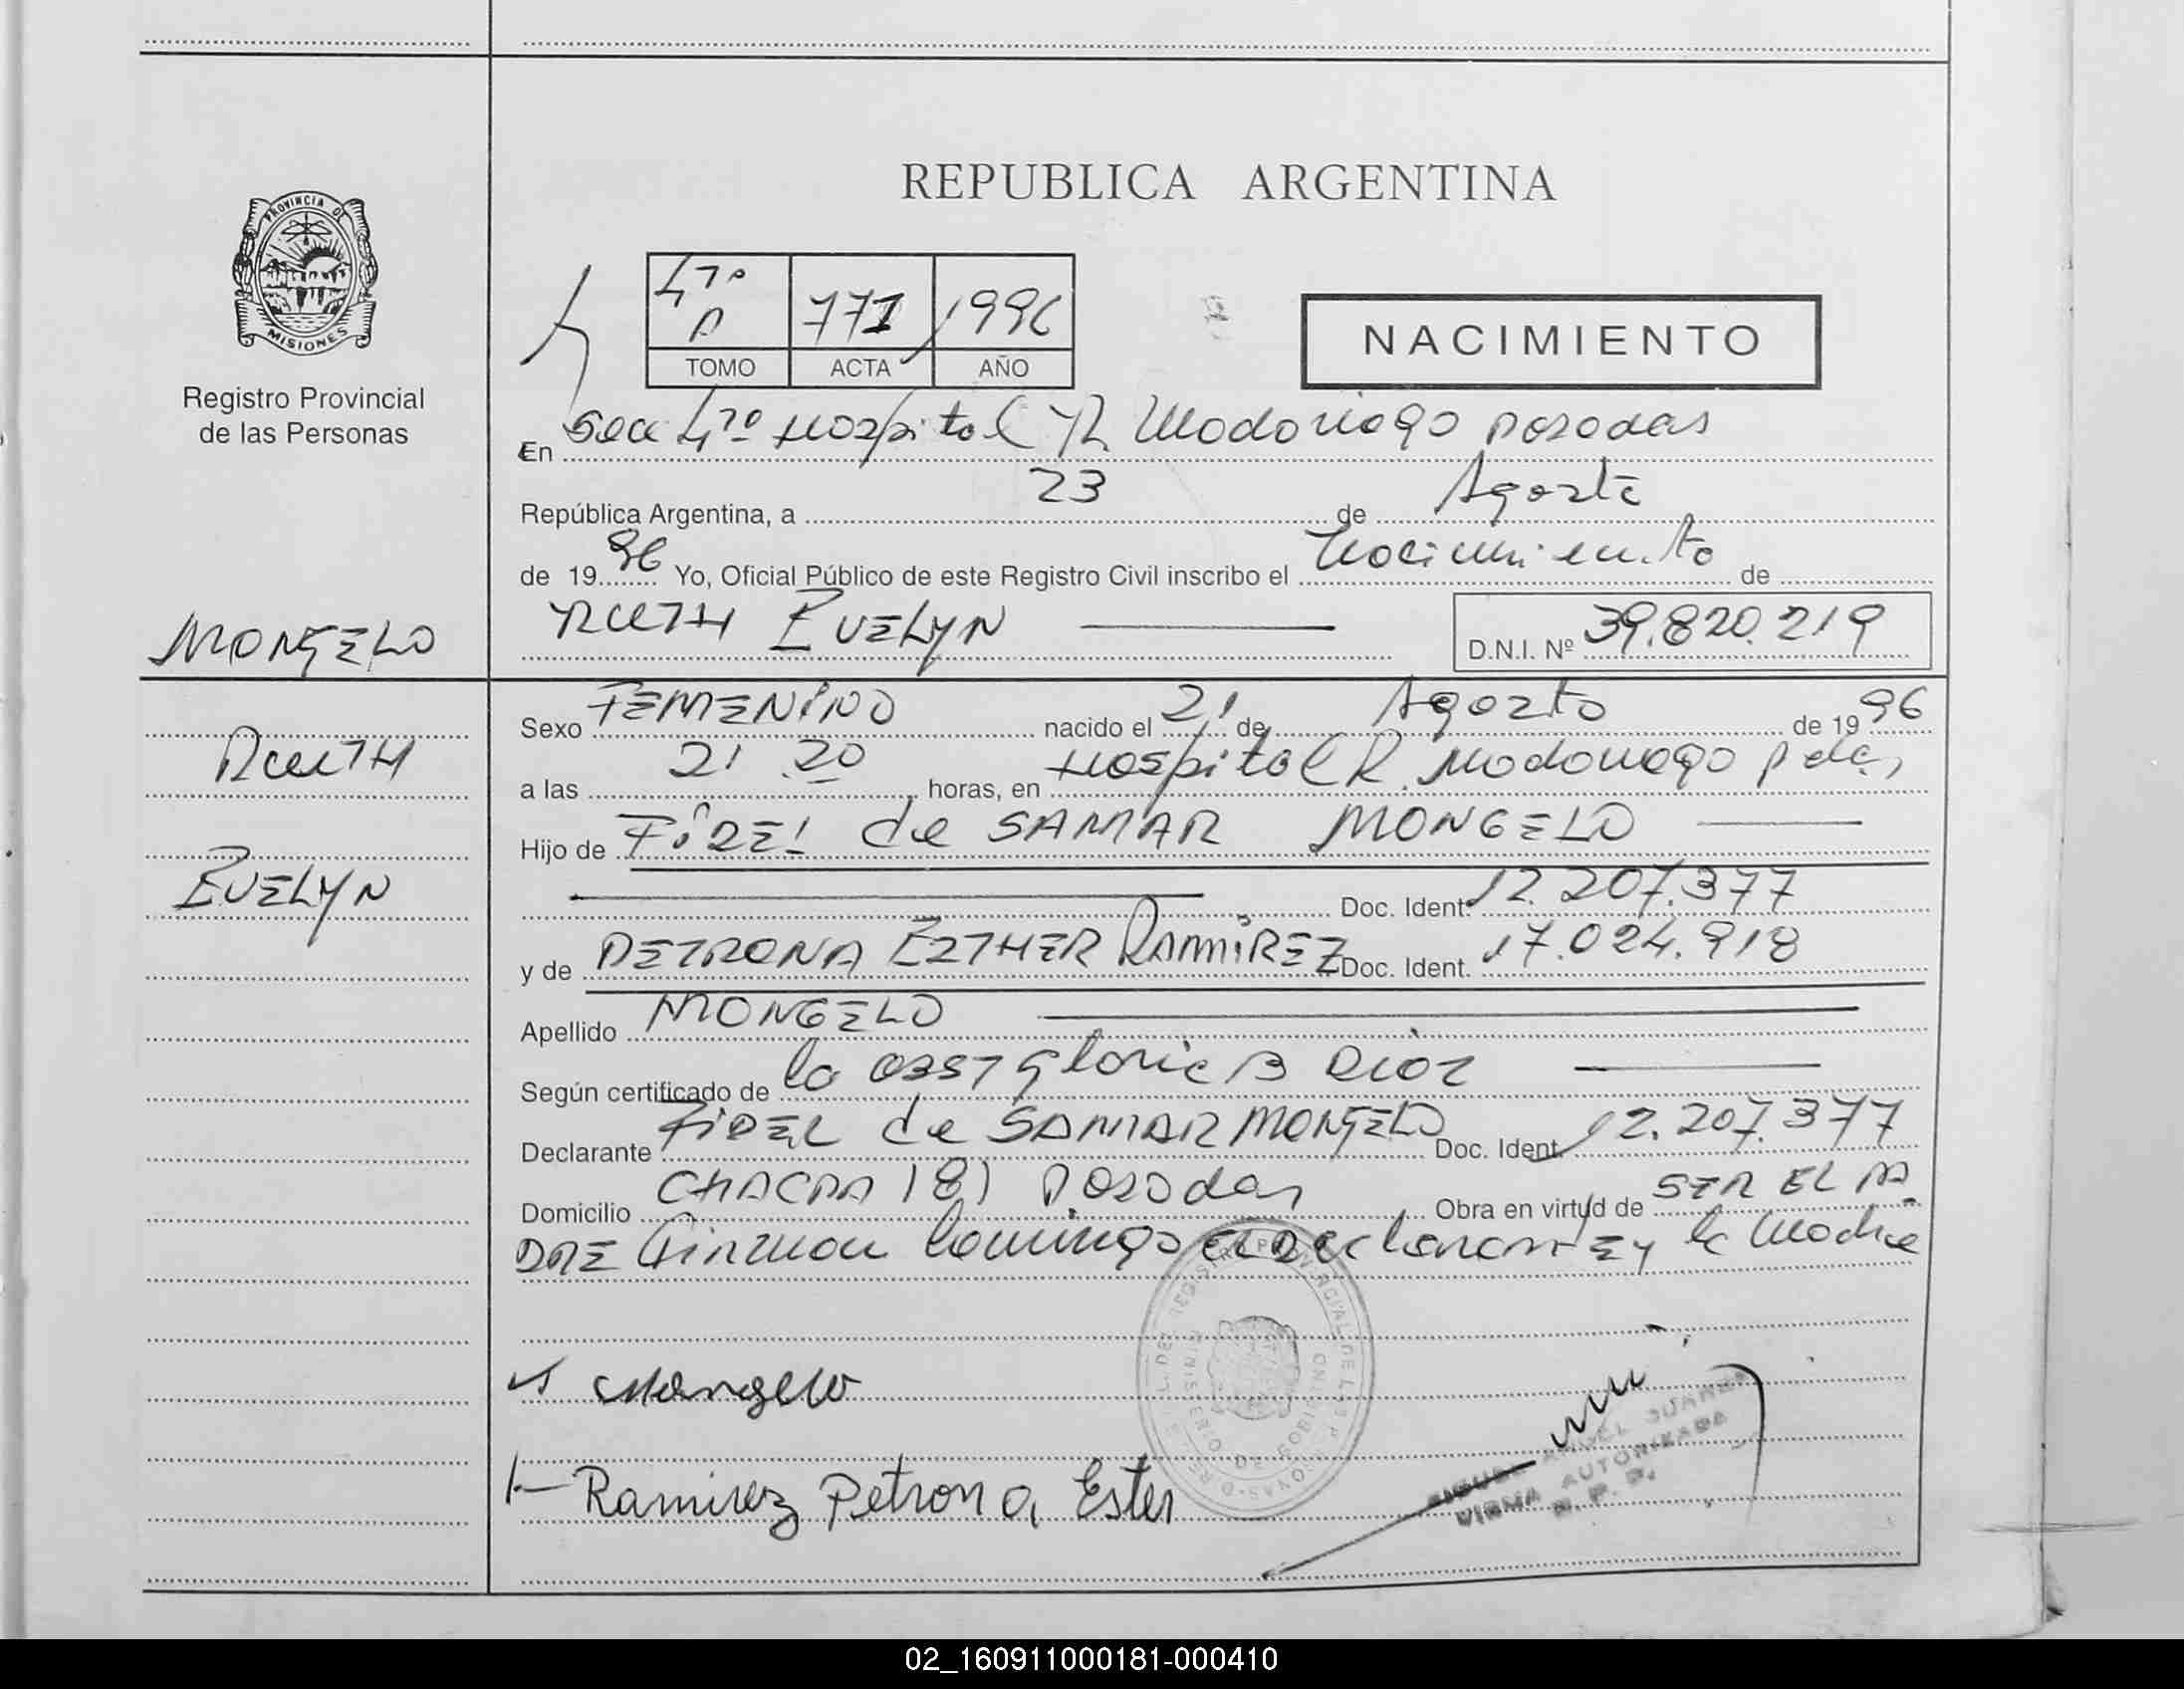 REPUBLICA ARGENTINA
PROVINCIA DE MISIONES
Registro Provincial
de las Personas
4ta 771 1996
TOMO ACTA AÑO
NACIMIENTO
En Secc 4ta Hospital R Madariaga Posadas
República Argentina, a 23 de Agosto
de 1996 Yo, Oficial Público de este Registro Civil inscribo el Nacimiento de
RUTH EVELYN
D.N.I. Nº 39.820.219
MONGELO
RUTH
EVELYN
Sexo FEMENINO nacido el 21 de Agosto de 1996
a las 21 20 horas, en Hospital R. Madariaga Pdas
Hijo de FIDEL de SAMAR MONGELO
Doc. Ident. 12.207.377
y de PETRONA ESTHER RAMIREZ Doc. Ident. 17.024.918
Apellido MONGELO
Según certificado de la Obst Gloria B Diaz
Declarante FIDEL de SAMAR MONGELO Doc. Ident. 12.207.377
Domicilio CHACRA 181 Posadas Obra en virtud de SER EL PA
DRE Firman conmigo el Declarante y la Madre
Mongelo
Ramirez Petrona Ester
FIRMA AUTORIZADA
R. P. P.
02_160911000181-000410